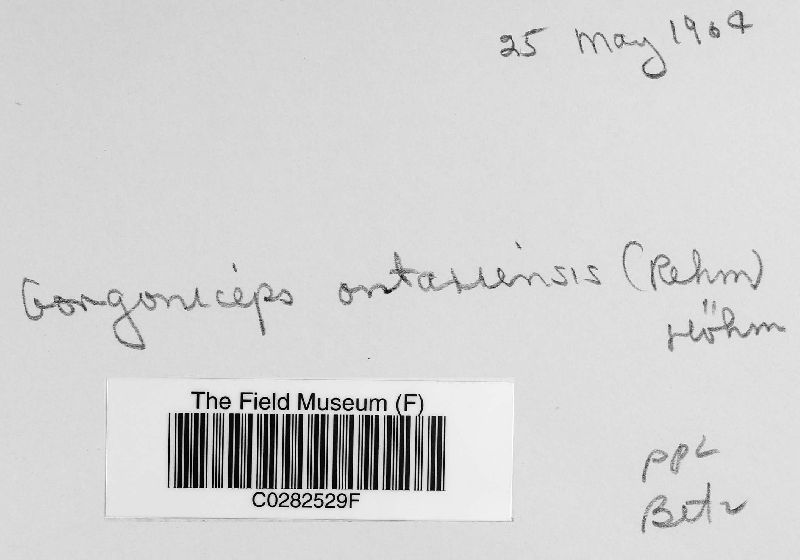 25 May 1964
Gorgoniceps ontariensis (Rehm)
Höhm
The Field Museum (F)
C0282529F
ppL
Betz